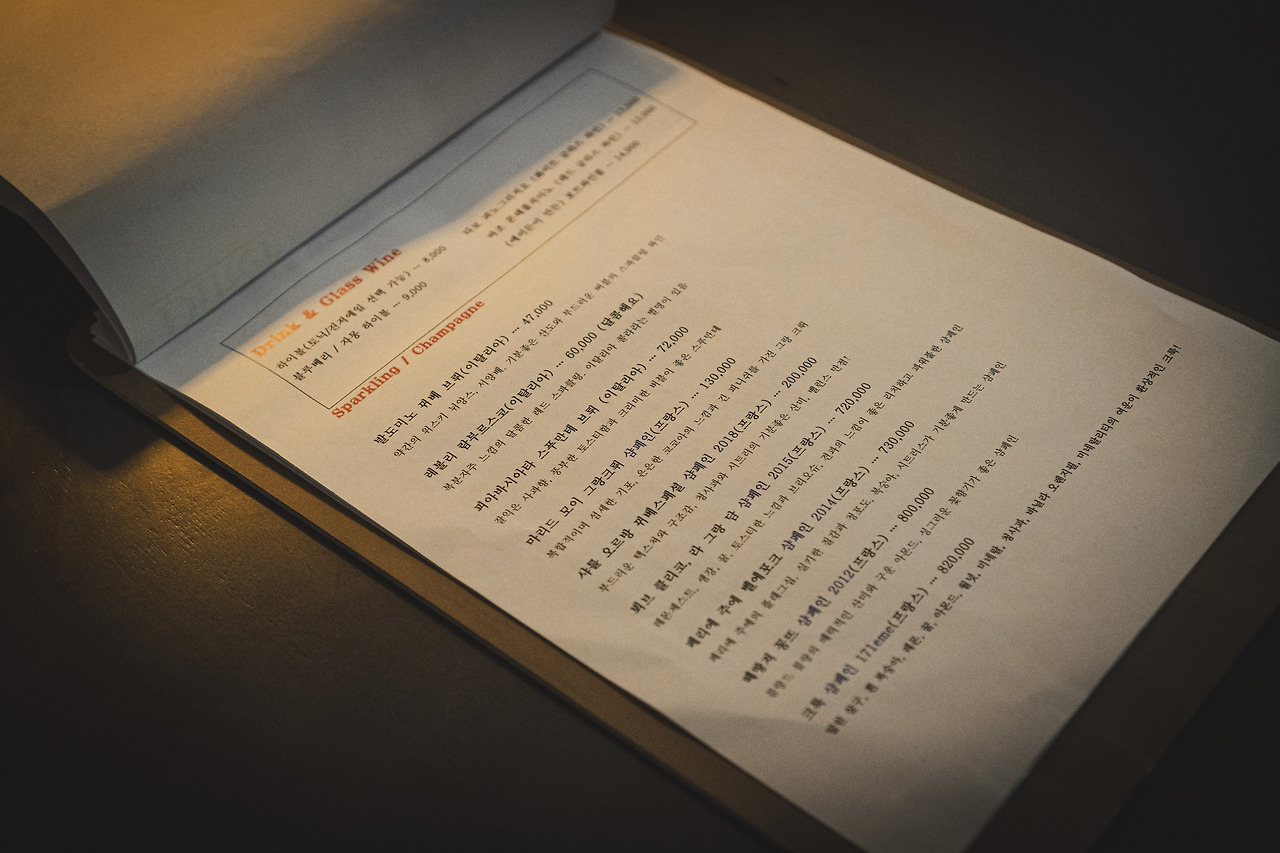 Drink & Glass Wine
하이볼(토닉/진저에일 선택 가능) – 8,000
블루베리 / 자몽 하이볼 – 9,000
피노그리지오 (화이트 글라스 와인) – 12,000
(레드 글라스 와인) – 13,000
포트와인 – 14,000
Sparkling / Champagne
발도미노 뀌베 브뤼(이탈리아) ... 47,000
약간의 위스키 뉘앙스, 서양배, 기분좋은 산도와 부드러운 버블의 스파클링 와인
래블리 람부르스코(이탈리아) ... 60,000 (달콤해요)
복분자주 느낌의 달콤한 레드 스파클링, 이탈리아 콜라라는 별명이 있음
피아마시아타 스푸만테 브뤼 (이탈리아) ... 72,000
잘익은 사과향, 풍부한 토스티함과 크리미한 버블이 좋은 스푸만테
마리드 모이 그랑크뤼 샴페인(프랑스) ... 130,000
복합적이며 섬세한 기포, 은은한 코코아의 느낌과 긴 피니쉬를 가진 그랑 크뤼
샤를 오르망 뀌베스페셜 샴페인 2018(프랑스) ... 200,000
부드러운 텍스처와 구조감, 청사과와 시트러의 기분좋은 산미, 밸런스 만점!
뵈브 클리코, 라 그랑 담 샴페인 2015(프랑스) ... 720,000
레몬제스트, 생강, 꿀, 토스티한 느낌과 브리오슈, 견과의 느낌이 좋은 리치하고 파워풀한 샴페인
페리에 주에 벨에포크 샴페인 2014(프랑스) ... 730,000
페리에 주에의 플래그십, 실키한 질감과 청포도, 복숭아, 시트러스가 기분좋게 만드는 샴페인
떼땅져 꽁뜨 샴페인 2012(프랑스) ... 800,000
블랑드 블랑의 매력적인 산미와 구운 아몬드, 싱그러운 꽃향기가 좋은 샴페인
크룩 샴페인 171eme(프랑스) ... 820,000
말린 살구, 흰 복숭아, 레몬, 꿀, 아몬드, 월넛, 미네랄, 청사과, 바닐라 오렌지필, 미네랄리티의 여운이 환상적인 크룩!